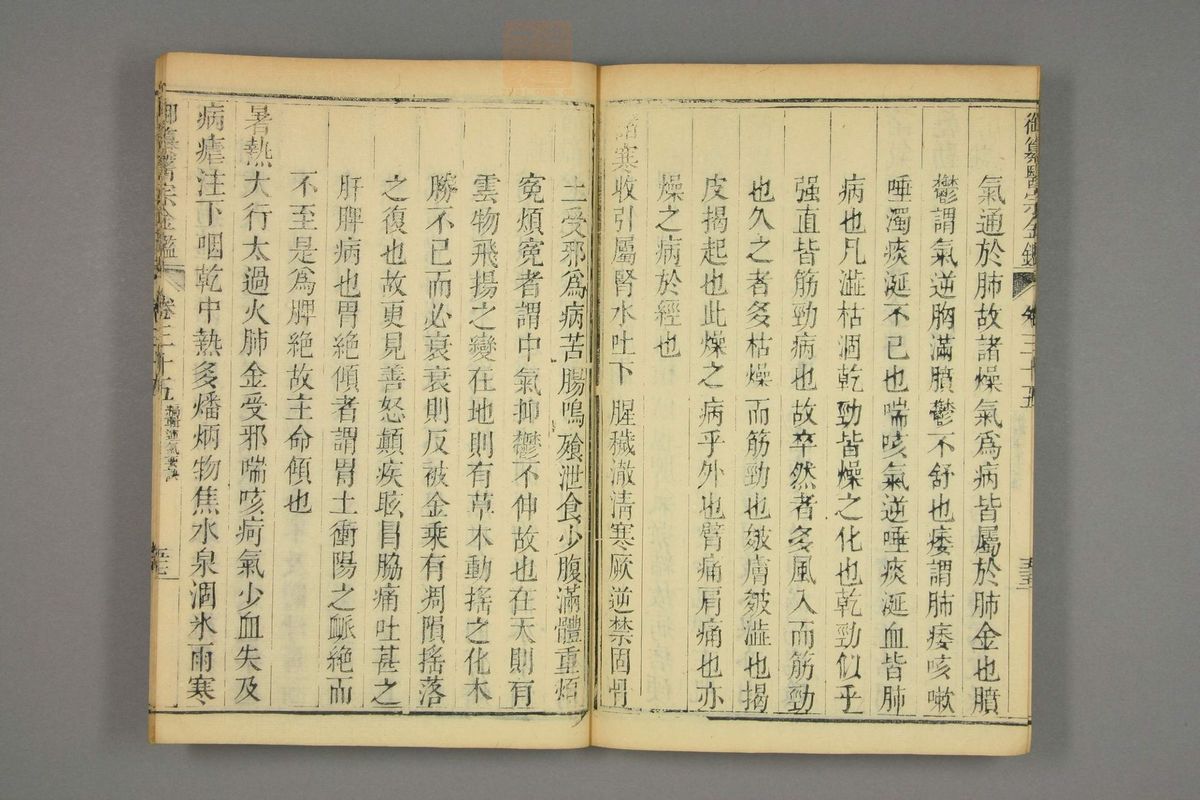 御纂醫宗金鑑 卷三十五 五十三
氣通於肺故諸燥氣爲病皆屬於肺金也膹
鬱謂氣逆胸滿膹鬱不舒也痿謂肺痿咳嗽
唾濁痰涎不已也喘咳氣逆唾痰涎血皆肺
病也凡澁枯涸乾勁皆燥之化也乾勁似乎
强直皆筋勁病也故卒然者多風入而筋勁
也久之者多枯燥而筋勁也皴膚皴澁也揭
皮揭起也此燥之病乎外也臂痛肩痛也亦
燥之病於經也
諸寒收引屬腎水吐下腥穢澈清寒厥逆禁固骨
土受邪爲病苦腸鳴飱泄食少腹滿體重煩
寃煩寃者謂中氣抑鬱不伸故也在天則有
雲物飛揚之變在地則有草木動搖之化木
勝不已而必衰衰則反被金乘有凋隕搖落
之復也故更見善怒顚疾眩冒脇痛吐甚之
肝脾病也胃絶傾者謂胃土衝陽之脈絶而
不至是爲脾絶故主命傾也
暑熱大行太過火肺金受邪喘咳疴氣少血失及
病瘧注下咽乾中熱多燔炳物焦水泉涸氷雨寒
御纂醫宗金鑑 卷三十五 編輯運氣要訣